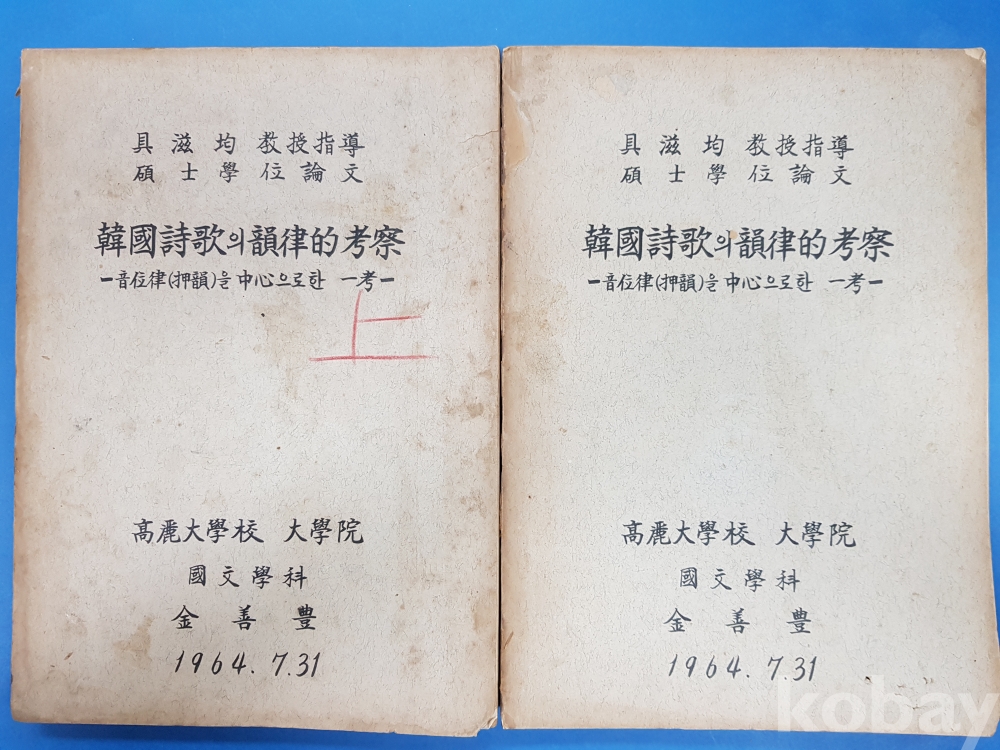 具滋均 敎授指導
碩士學位論文
韓國詩歌의韻律的考察
ー音位律(押韻)을 中心으로한 一考ー
上
高麗大學校 大學院
國文學科
金善豊
1964. 7.31
具滋均 敎授指導
碩士學位論文
韓國詩歌의韻律的考察
ー音位律(押韻)을 中心으로한 一考ー
高麗大學校 大學院
國文學科
金善豊
1964. 7.31
kobay